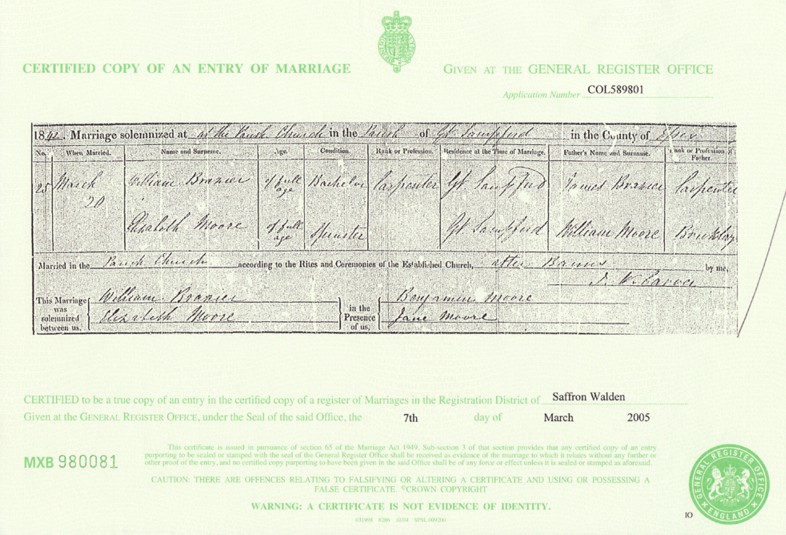 CERTIFIED COPY OF AN ENTRY OF MARRIAGE
GIVEN AT THE GENERAL REGISTER OFFICE
Application Number COL589801
Marriage solemnized at at the Parish Church in the Parish of Gt Sampford in the County of Essex
No. When Married. Name and Surname. Age. Condition. Rank or Profession. Residence at the Time of Marriage. Father's Name and Surname. Rank or Profession of Father.
25 March 20 William Brazier of full age Bachelor Carpenter Gt Sampford James Brazier Carpenter
Elizabeth Moore of full age Spinster Gt Sampford William Moore
Married in the Parish Church according to the Rites and Ceremonies of the Established Church, after Banns by me,
This Marriage was solemnized between us, William Brazier Elizabeth Moore in the Presence of us, Benjamin Moore Jane Moore
CERTIFIED to be a true copy of an entry in the certified copy of a register of Marriages in the Registration District of Saffron Walden
Given at the GENERAL REGISTER OFFICE, under the Seal of the said Office, the 7th day of March 2005
MXB 980081
This certificate is issued in pursuance of section 65 of the Marriage Act 1949. Sub-section 3 of that section provides that any certified copy of an entry
purporting to be sealed or stamped with the seal of the General Register Office shall be received as evidence of the marriage to which it relates without any further or
other proof of the entry, and no certified copy purporting to have been given in the said Office shall be of any force or effect unless it is sealed or stamped as aforesaid.
CAUTION: THERE ARE OFFENCES RELATING TO FALSIFYING OR ALTERING A CERTIFICATE AND USING OR POSSESSING A
FALSE CERTIFICATE. ©CROWN COPYRIGHT
WARNING: A CERTIFICATE IS NOT EVIDENCE OF IDENTITY.
GENERAL REGISTER OFFICE
ENGLAND